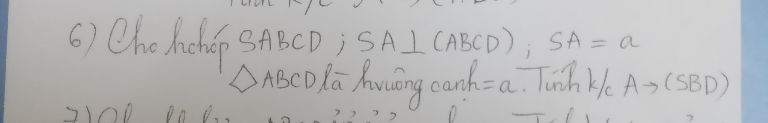 6) Cho hchóp SABCD ; SA ⊥ (ABCD) ; SA = a
◇ABCD là hvuông cạnh = a. Tính k/c A → (SBD)